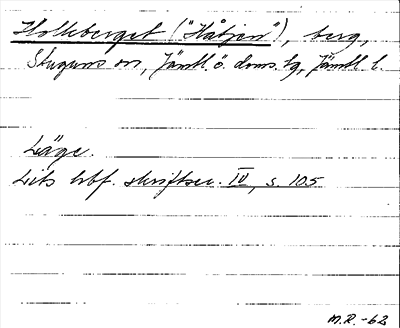 Holleberget ("Håtjen"), berg,
Stuguns sn, Jämtl. ö. doms. tg, Jämtl. l.
Läge.
Lits hbf. skriftser. IV, s. 105
M.R.-62